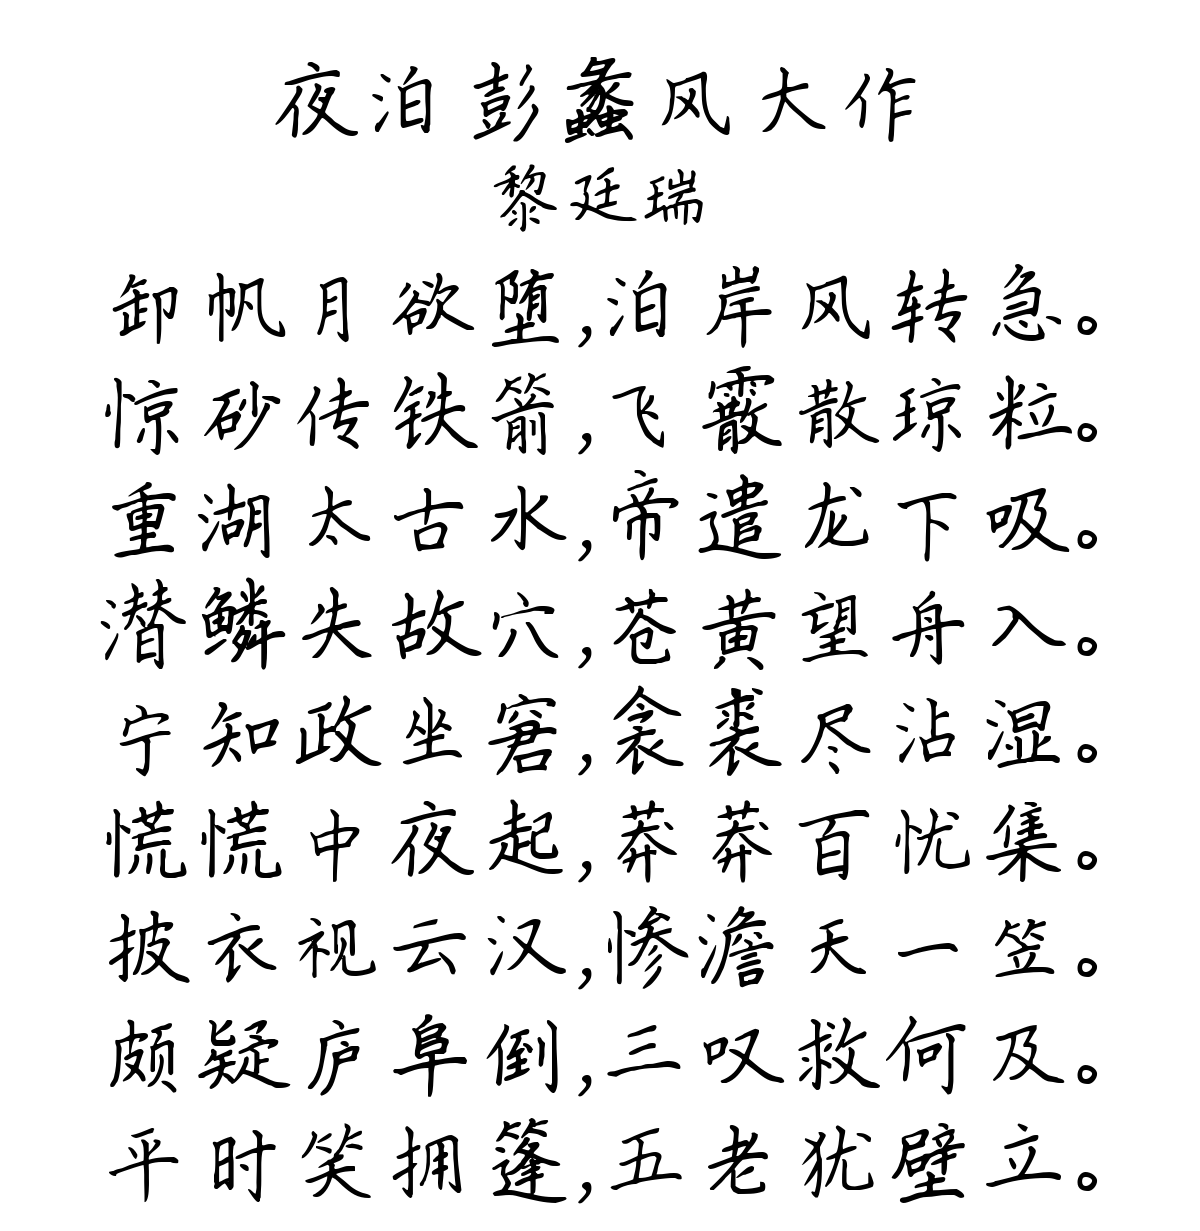 夜泊彭蠡风大作
黎廷瑞
卸帆月欲堕,泊岸风转急。
惊砂传铁箭,飞霰散琼粒。
重湖太古水,帝遣龙下吸。
潜鳞失故穴,苍黄望舟入。
宁知政坐窘,衾裘尽沾湿。
慌慌中夜起,莽莽百忧集。
披衣视云汉,惨澹天一笠。
颇疑庐阜倒,三叹救何及。
平时笑拥篷,五老犹壁立。